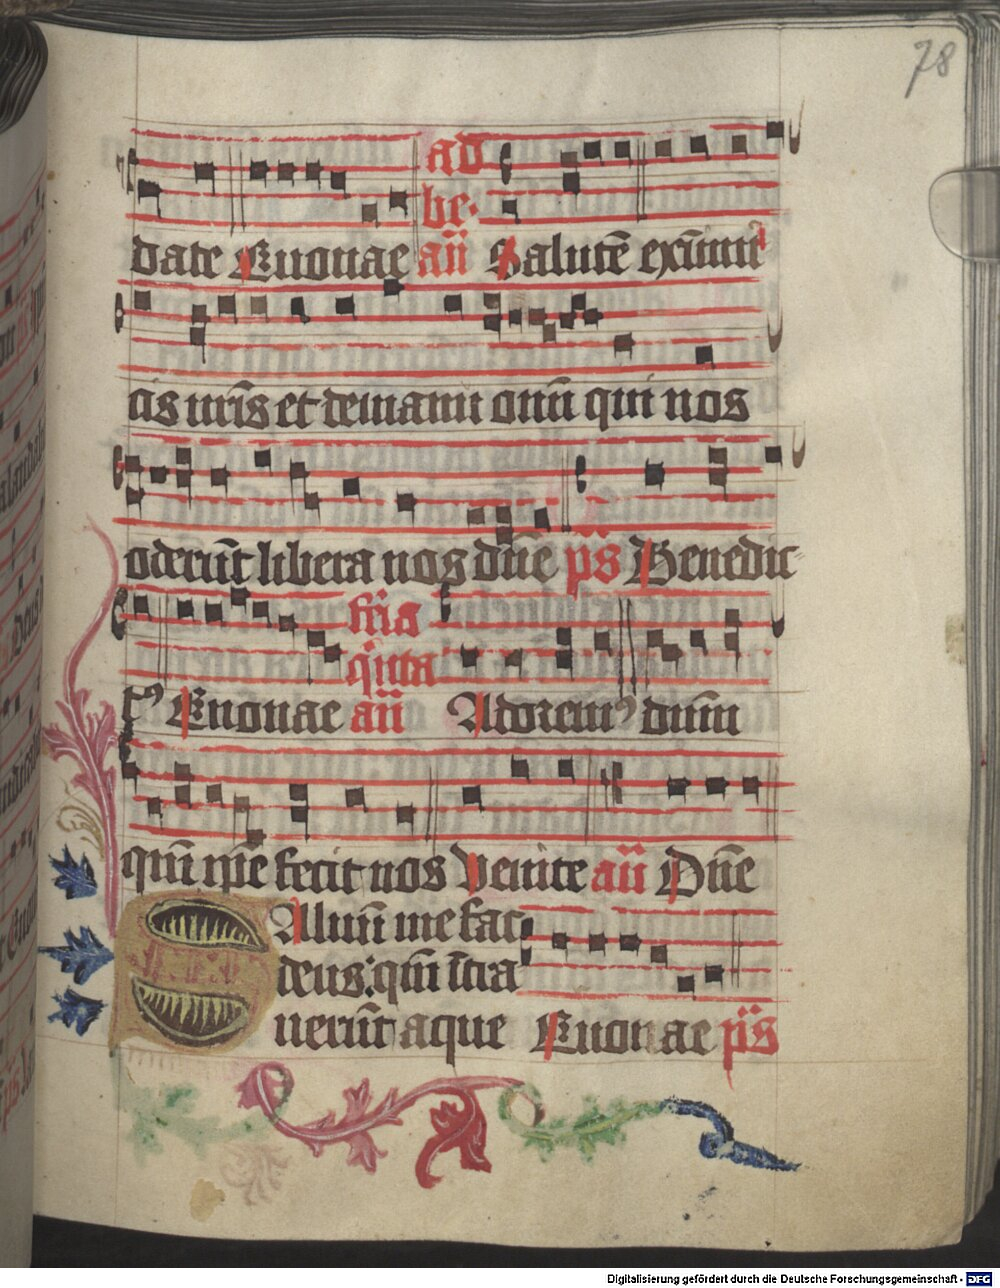 78
ad
be.
date Euouae añ Salutē ex inimi
cis nr̄is et de manu om̄ qui nos
oderūt libera nos dn̄e ps̄ Benedic
fr̄ia
quīta
tꝰ Euouae añ Adoremꝰ dnm̄
qm̄ ip̄e fecit nos Venite añ Dn̄e
Saluū me fac
deus: qm̄ ītra
uerūt aque Euouae ps̄
Digitalisierung gefördert durch die Deutsche Forschungsgemeinschaft - DFG